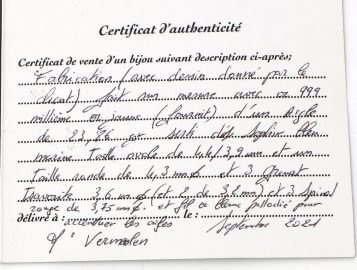 Certificat d'authenticité
Certificat de vente d'un bijou suivant description ci-après;
Fabrication (avec dessin donné par le
client) fait sur mesure avec or 999
millième or jaune (fournit) d'un
de 23, serti saphir bleu
marine Taille ovale de 4,4/3,9 mm et un
Taille ronde de 4,3 mm ø et 3 Grenat
3,6 mm ø (et 2 de 3,2 mm) et 3 Spinel
rouge de 3,75 mm ø. et fil or blanc palladié pour
délivré à : accentuer les ailes le : Septembre 2021
Vermoten